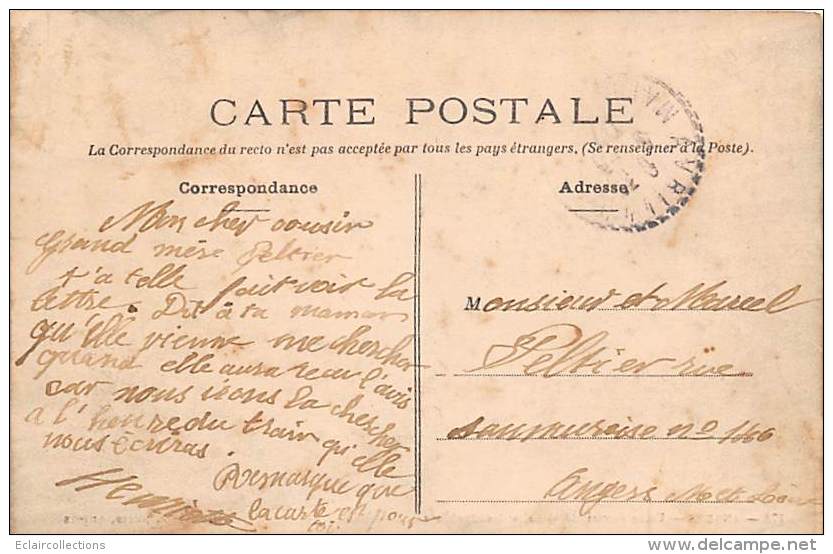 CARTE POSTALE
La Correspondance du recto n'est pas acceptée par tous les pays étrangers. (Se renseigner à la Poste).
Correspondance
Mon cher cousin
Grand mère Peltier
t'a telle fait voir la
lettre. Dit à ta maman
qu'elle vienne me chercher
quand elle aura reçu l'avis
car nous irons la chercher
a l'heure du train qu'elle
nous écriras.
Remarque que
la carte est pour
toi
Adresse
Monsieur et Marcel
Peltier rue
saumuroise no 146
Angers
AVRILL
Eclaircollections
delcampe.net